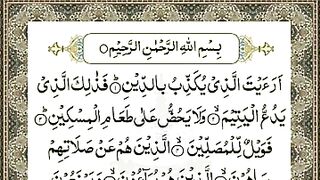 بِسْمِ اللهِ الرَّحْمٰنِ الرَّحِيْمِ ○
اَرَءَيْتَ الَّذِيْ يُكَذِّبُ بِالدِّيْنِ ؕ فَذٰلِكَ الَّذِيْ
يَدُعُّ الْيَتِيْمَ ۙ وَلَا يَحُضُّ عَلٰى طَعَامِ الْمِسْكِيْنِ ؕ
فَوَيْلٌ لِّلْمُصَلِّيْنَ ۙ الَّذِيْنَ هُمْ عَنْ صَلَاتِهِمْ